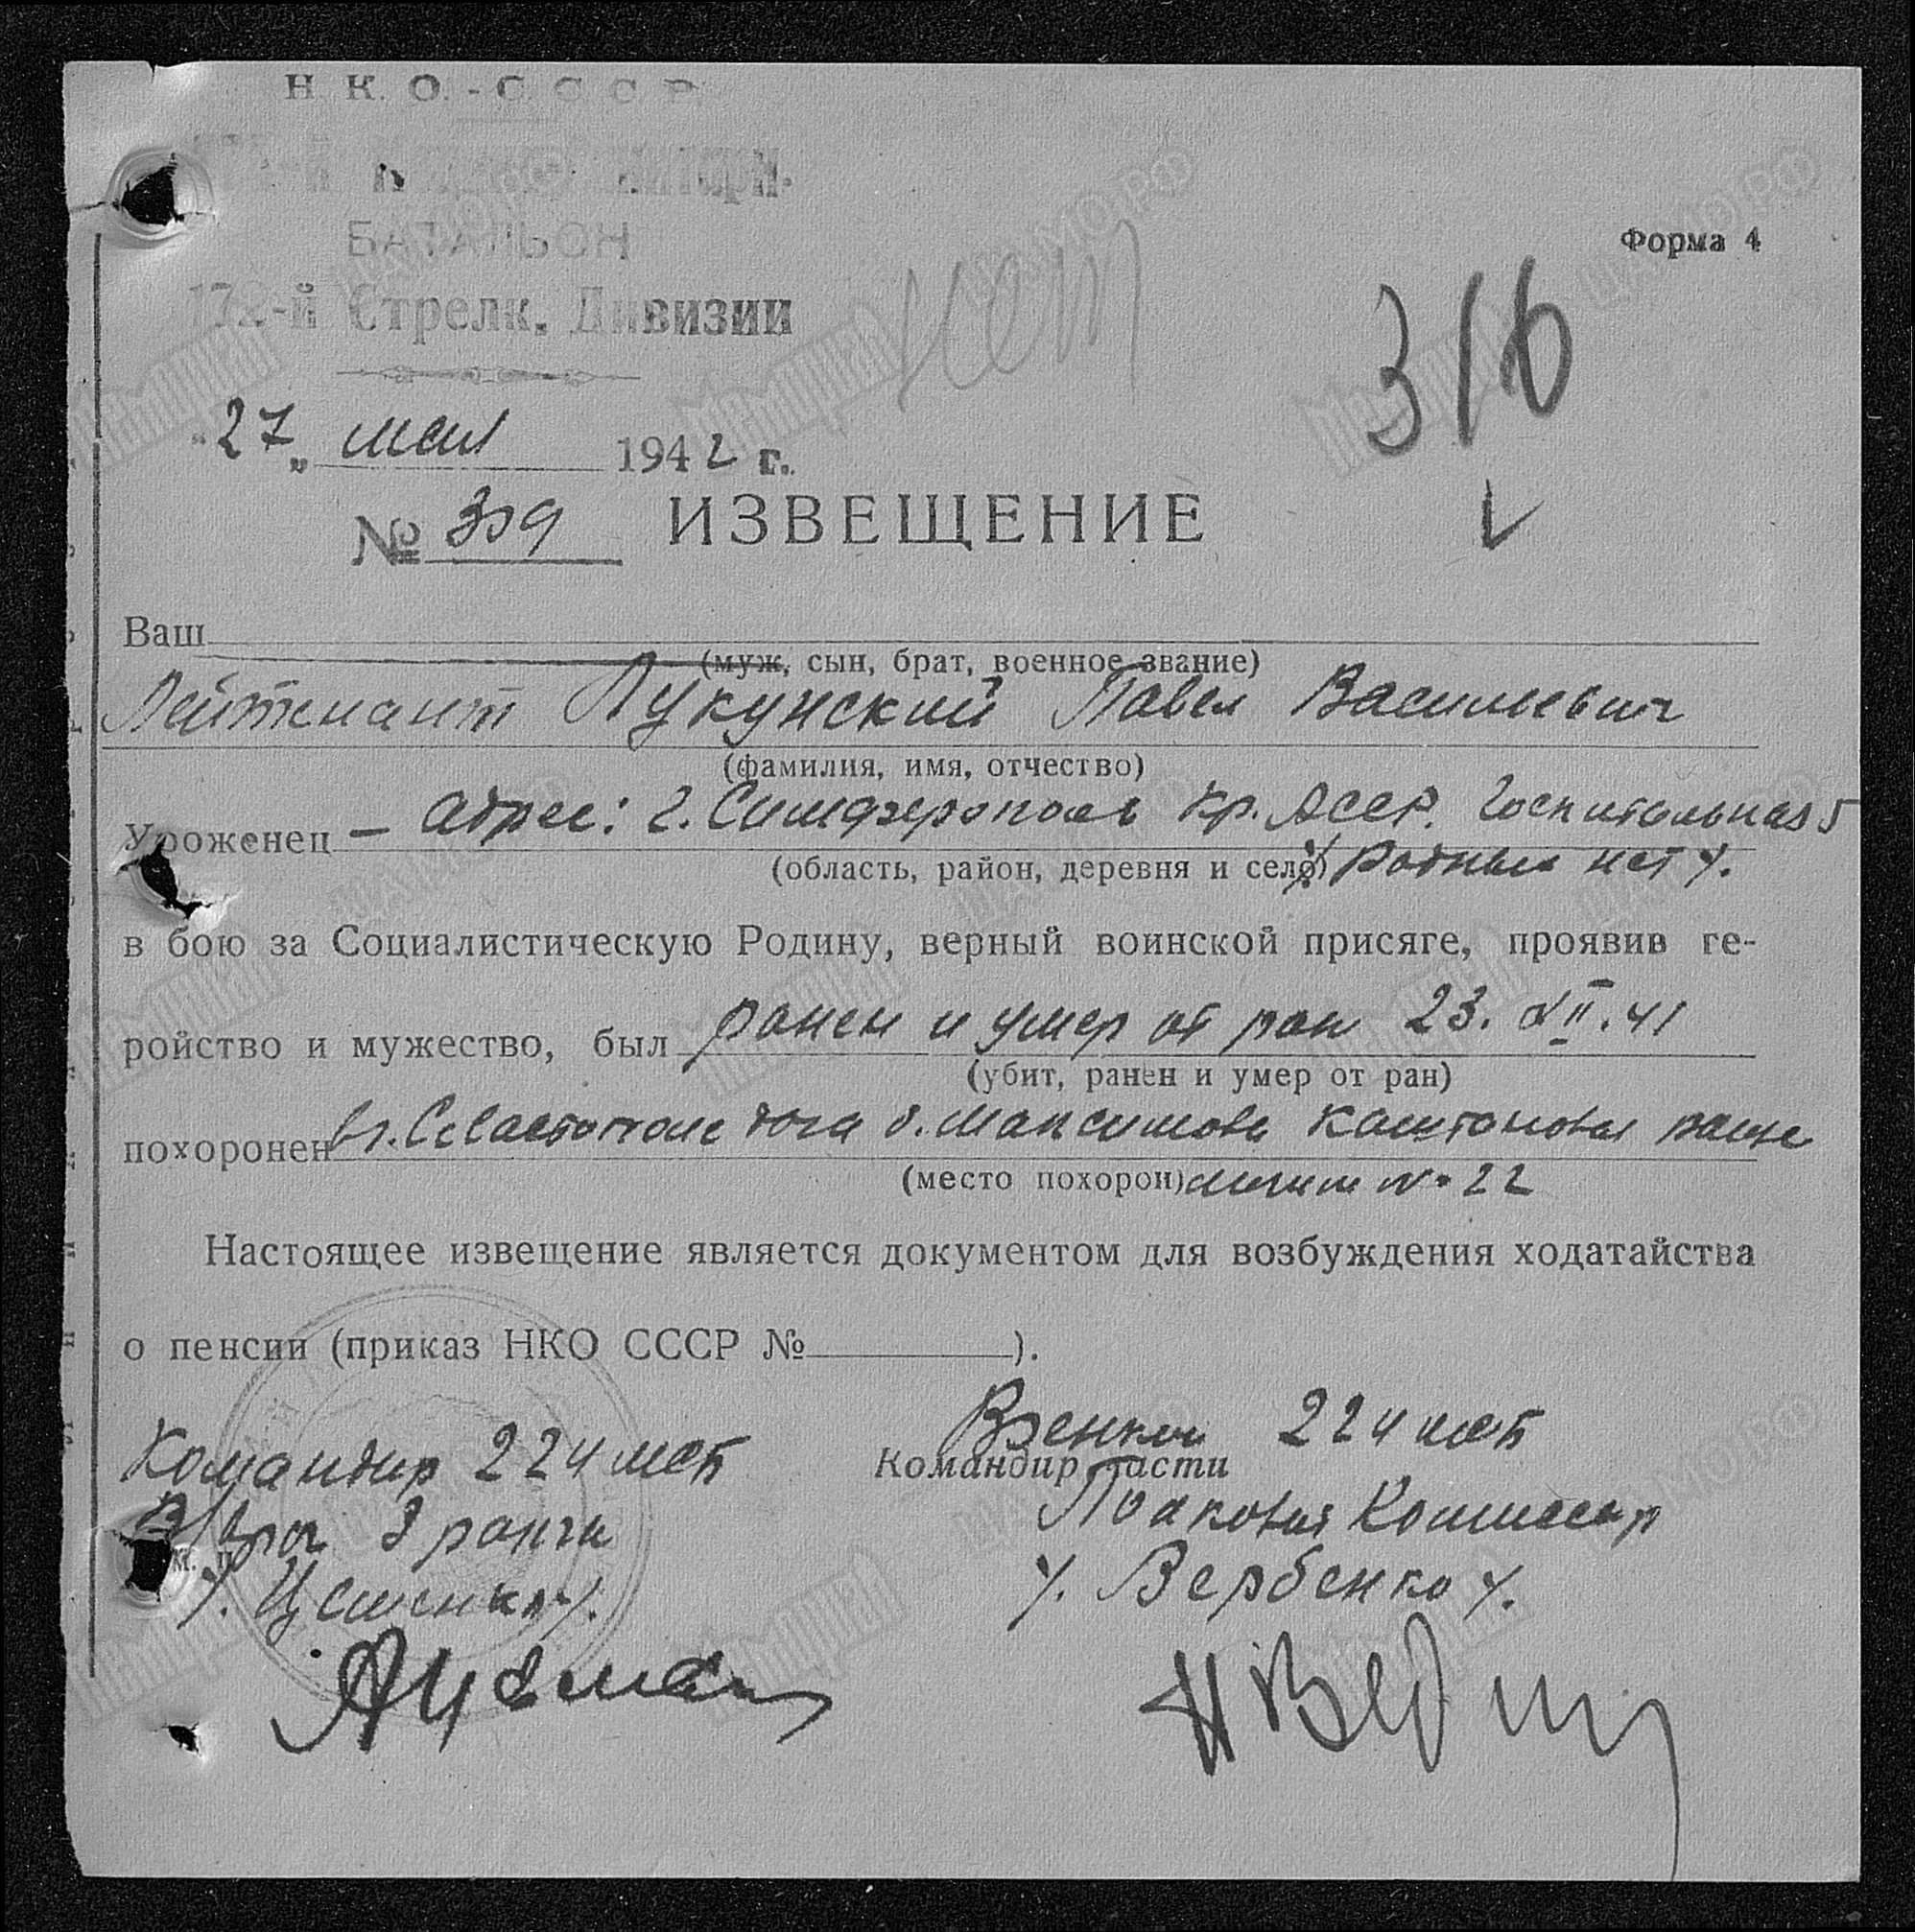 Н. К. О. - С. С. С. Р.
БАТАЛЬОН
172-й Стрелк. Дивизии
Форма 4
нет
316
"27" мая 1942 г.
№ ИЗВЕЩЕНИЕ
Ваш
(муж, сын, брат, военное звание)
Лейтенант Лукунский Павел Васильевич
(фамилия, имя, отчество)
Уроженец – адрес: г. Симферополь Кр. АССР. Госпитальная 5
(область, район, деревня и село) /. Родных нет /.
в бою за Социалистическую Родину, верный воинской присяге, проявив ге-
ройство и мужество, был ранен и умер от ран 23. XII. 41
(убит, ранен и умер от ран)
похоронен в г. Севастополе дача б. Максимова Каштановая роща
(место похорон) могила № 22
Настоящее извещение является документом для возбуждения ходатайства
о пенсии (приказ НКО СССР № ).
Командир 224 мсб Военком 224 мсб
Командир части
В/врач 3 ранга Полковой Комиссар
м. п.
/. Вербенко /.